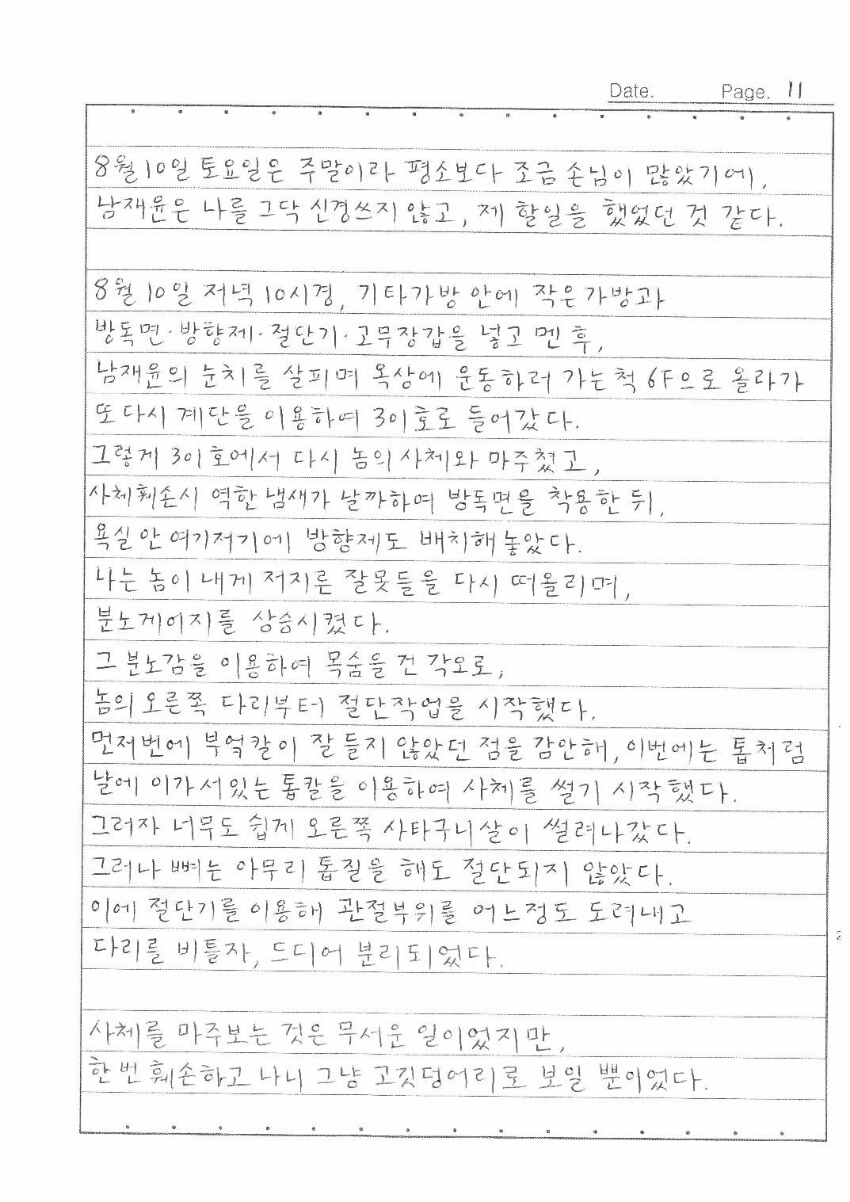 Date. Page. 11
8월 10일 토요일은 주말이라 평소보다 조금 손님이 많았기에,
남재윤은 나를 그닥 신경쓰지 않고, 제 할일을 했었던 것 같다.
8월 10일 저녁 10시경, 기타가방 안에 작은가방과
방독면·방향제·절단기·고무장갑을 넣고 멘 후,
남재윤의 눈치를 살피며 옥상에 운동하러 가는 척 6F으로 올라가
또 다시 계단을 이용하여 301호로 들어갔다.
그렇게 301호에서 다시 놈의 사체와 마주쳤고,
사체훼손시 역한 냄새가 날까하여 방독면을 착용한 뒤,
욕실 안 여기저기에 방향제도 배치해놓았다.
나는 놈이 내게 저지른 잘못들을 다시 떠올리며,
분노게이지를 상승시켰다.
그 분노감을 이용하여 목숨을 건 각오로,
놈의 오른쪽 다리부터 절단작업을 시작했다.
먼저번에 부엌칼이 잘 들지 않았던 점을 감안해, 이번에는 톱처럼
날에 이가 서있는 톱칼을 이용하여 사체를 썰기 시작했다.
그러자 너무도 쉽게 오른쪽 사타구니살이 썰려나갔다.
그러나 뼈는 아무리 톱질을 해도 절단되지 않았다.
이에 절단기를 이용해 관절부위를 어느정도 도려내고
다리를 비틀자, 드디어 분리되었다.
사체를 마주보는 것은 무서운 일이었지만,
한 번 훼손하고 나니 그냥 고깃덩어리로 보일 뿐이었다.